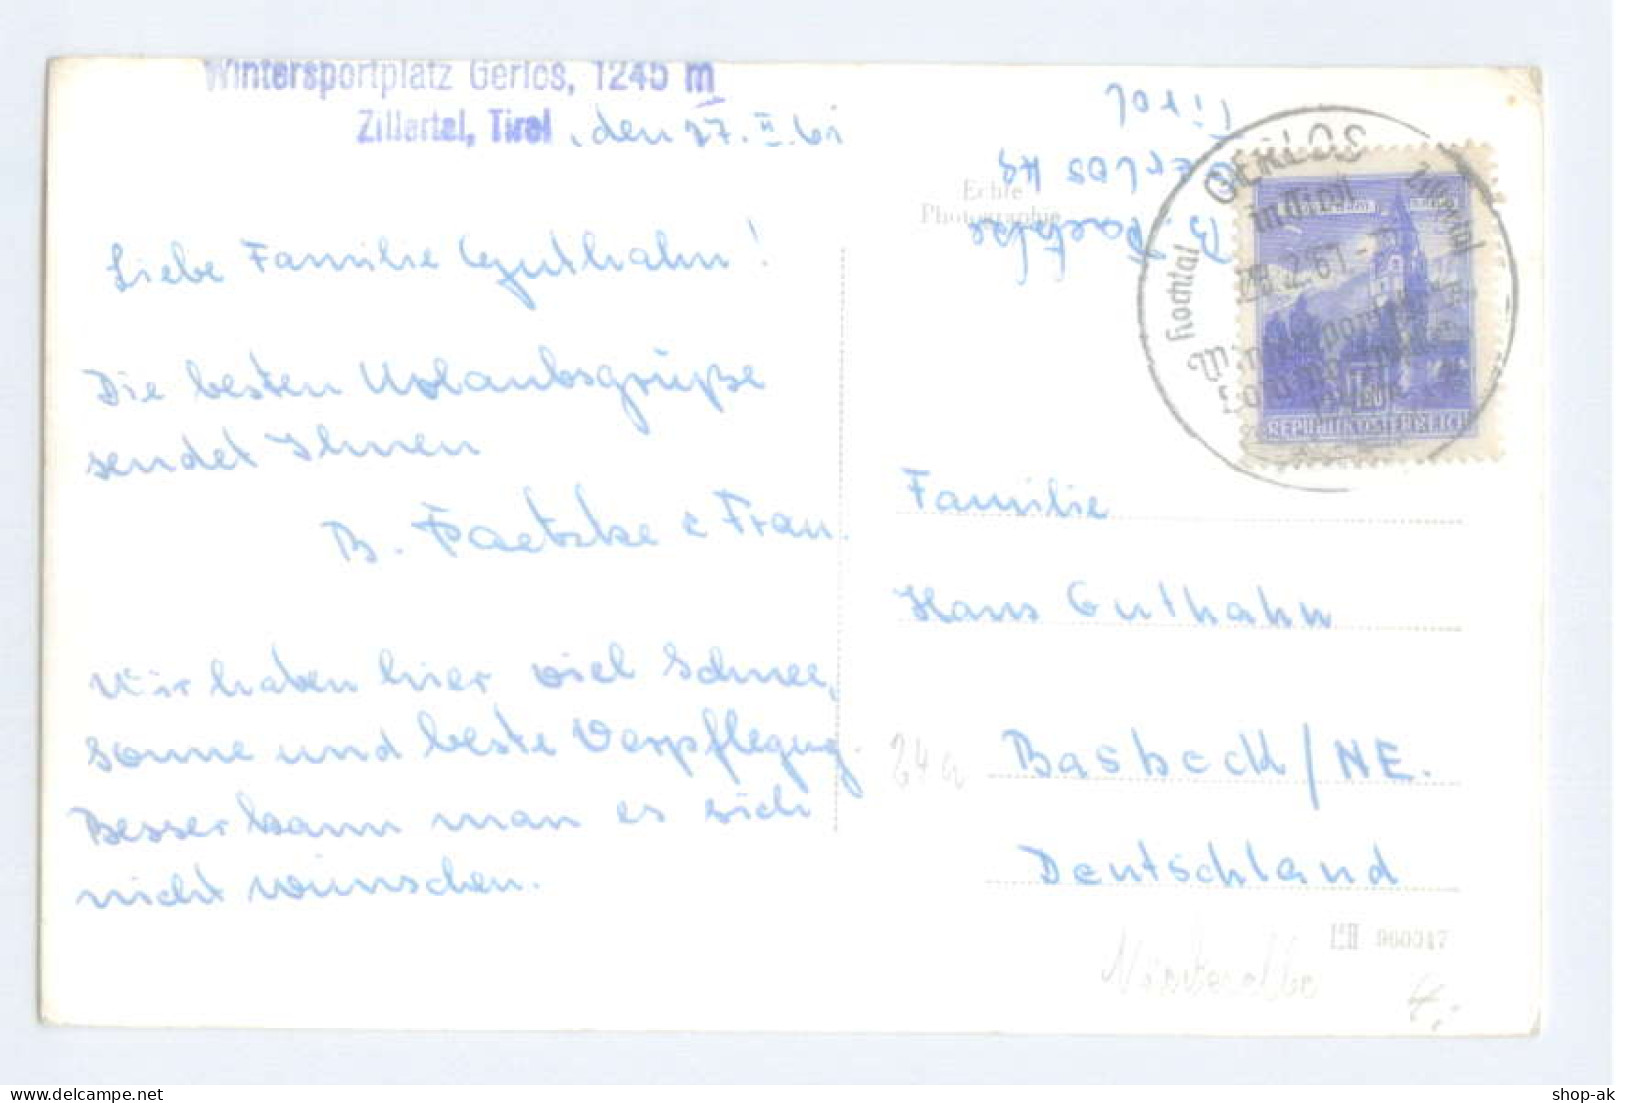 Wintersportplatz Gerlos, 1245 m
Zillertal, Tirol, den 27. II. 61
Liebe Familie Guthahn!
Die besten Urlaubsgrüße
sendet Ihnen
B. Paetzke & Frau.
Wir haben hier viel Schnee,
Sonne und beste Verpflegug.
Besser kann man es sich
nicht wünschen.
B. Paetzke
Gerlos 49
Tirol
Echte
Photographie
GERLOS
in Tirol
Zillertal
Hochtal
28.2.61
REPUBLIK ÖSTERREICH
Familie
Hans Guthahn
24a
Basbeck/NE.
Deutschland
960317
4,-
shop-ak